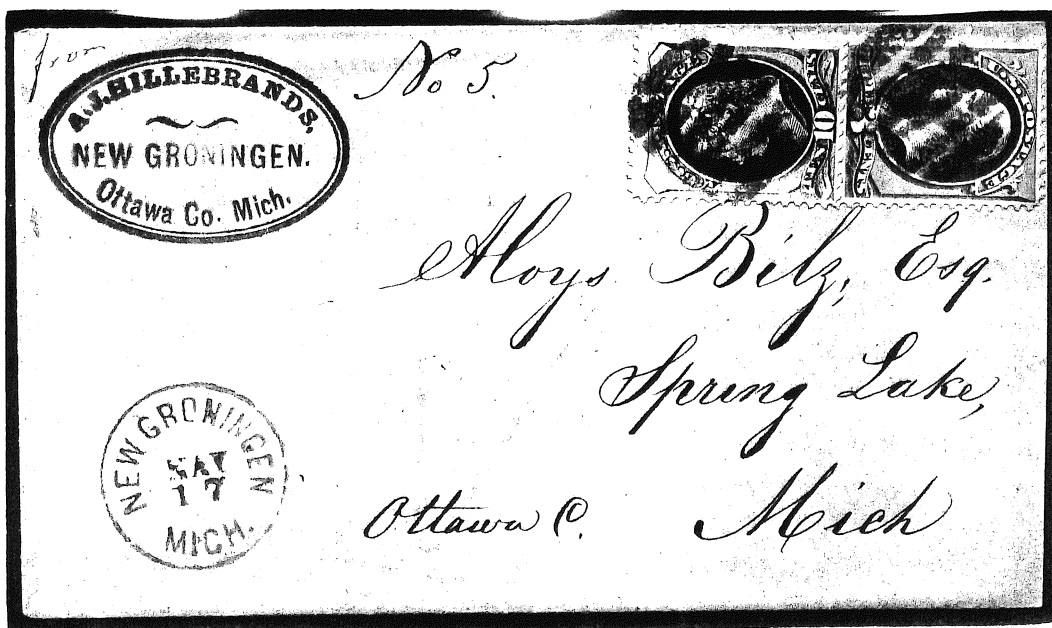 from
A.J. HILLEBRANDS,
NEW GRONINGEN.
Ottawa Co. Mich.
No 5.
Aloys Bilz, Esq.
Spring Lake,
Ottawa C. Mich
NEW GRONINGEN
MAY
17
MICH.